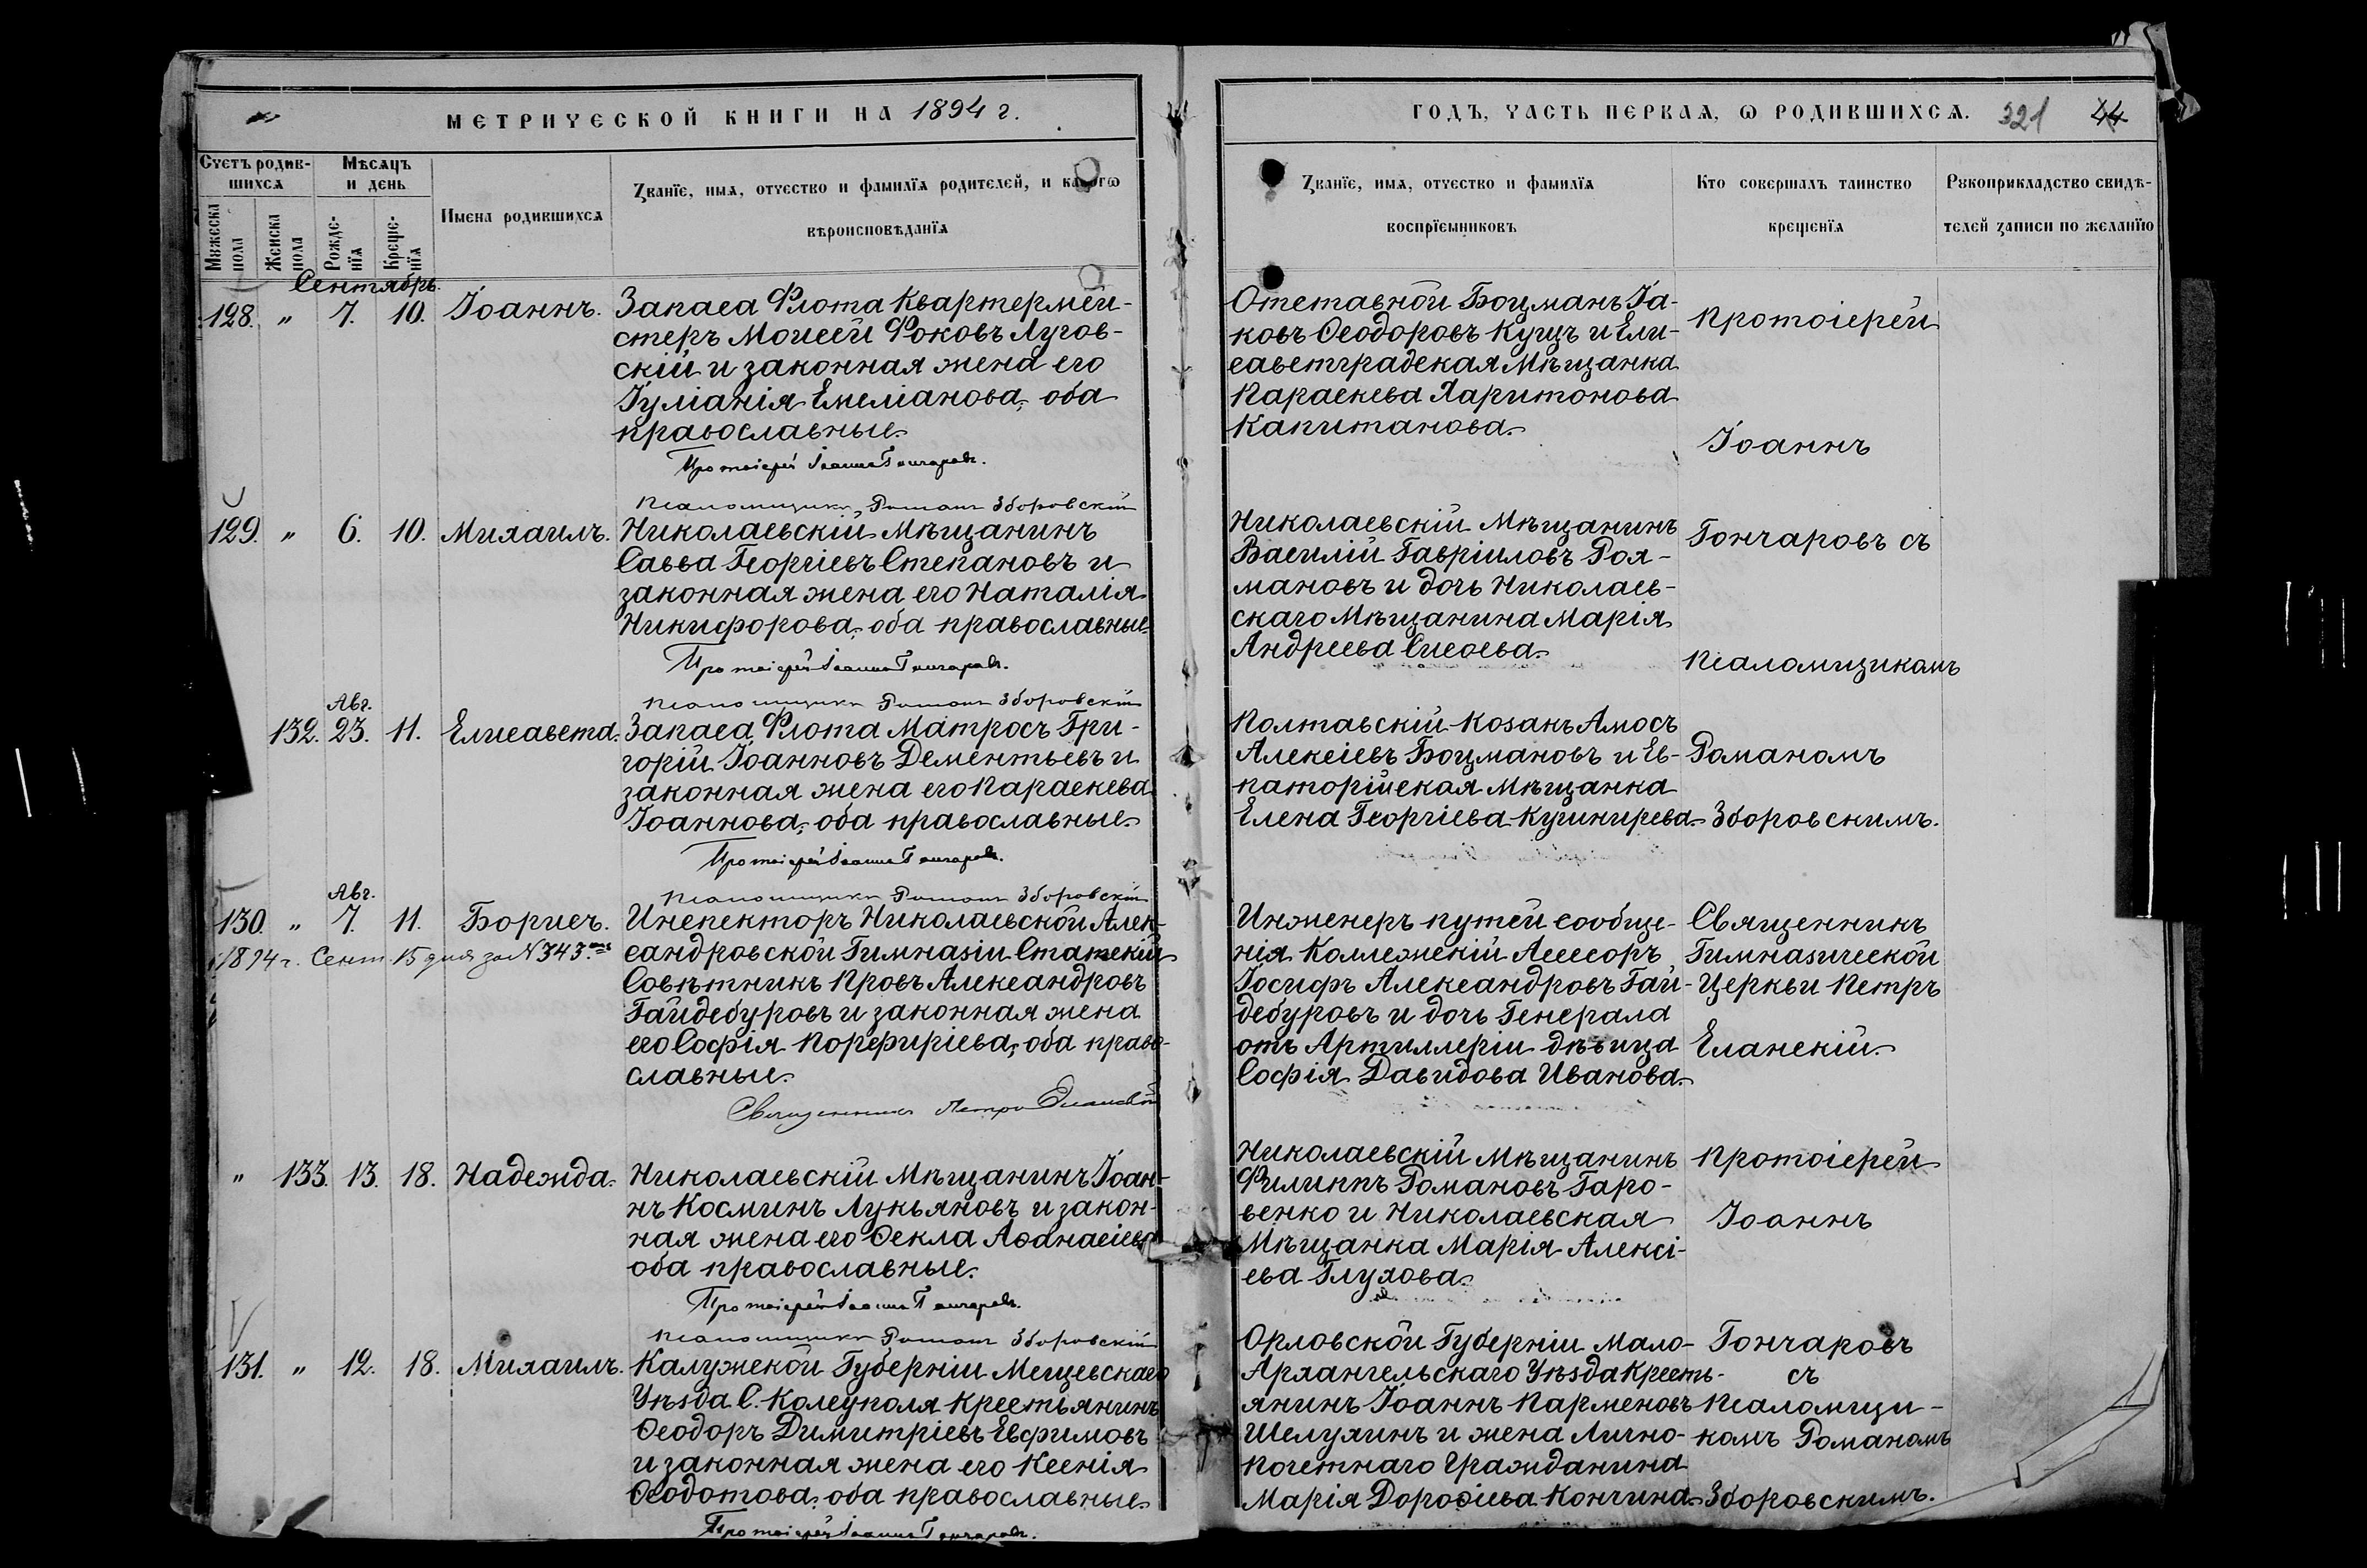 МЕТРИЧЕСКОЙ КНИГИ НА 1894 г.
Счетъ родив-
шихся
Мѣсяцъ
и день
Мужеска
пола
Женска
пола
Рожде-
нія
Креще-
нія
Имена родившихся
Званїе, имя, отчество и фамилїя родителей, и какогѡ
вѣроисповѣданїя
Сентябрь.
128. " 7. 10. Іоаннъ.
Запаса Флота Квартермей-
стеръ Моисей Фоковъ Лугов-
скій и законная жена его
Іуліанія Емеліанова, оба
православные.
Протоіерей Іоаннъ Гончаровъ.
Псаломщикъ Романъ Зборовскій
129. " 6. 10. Михаилъ.
Николаевскій Мѣщанинъ
Савва Георгіевъ Степановъ и
законная жена его Наталія
Никифорова, оба православные.
Протоіерей Іоаннъ Гончаровъ.
Псаломщикъ Романъ Зборовскій
Авг.
132. 23. 11. Елисавета.
Запаса Флота Матросъ Гри-
горій Іоанновъ Дементьевъ и
законная жена его Параскева
Іоаннова, оба православные.
Протоіерей Іоаннъ Гончаровъ.
Псаломщикъ Романъ Зборовскій
Авг.
130. " 7. 11. Борисъ.
1894 г. Сент. 15 дня за N 343.
Инспекторъ Николаевской Алек-
сандровской Гимназіи Статскій
Совѣтникъ Провъ Александровъ
Гайдебуровъ и законная жена
его Софія Порфиріева, оба право-
славные.
Священникъ Петръ Еланскій
" 133. 13. 18. Надежда.
Николаевскій Мѣщанинъ Іоан-
нъ Косминъ Лукьяновъ и закон-
ная жена его Ѳекла Аѳанасіева
оба православные.
Протоіерей Іоаннъ Гончаровъ.
Псаломщикъ Романъ Зборовскій
131. " 12. 18. Михаилъ.
Калужской Губерніи Мещевскаго
Уѣзда С. Колеуполя Крестьянинъ
Ѳеодоръ Димитріевъ Евфимовъ
и законная жена его Ксенія
Ѳеодотова, оба православные.
Протоіерей Іоаннъ Гончаровъ.
ГОДЪ, ЧАСТЬ ПЕРВАЯ, Ѡ РОДИВШИХСЯ. 321 44
Званїе, имя, отчество и фамилїя
воспрїемниковъ
Кто совершалъ таинство
крещенїя
Рукоприкладство свидѣ-
телей записи по желанїю
Отставной Боцманъ Іа-
ковъ Ѳеодоровъ Кущъ и Ели-
саветградская Мѣщанка
Параскева Харитонова
Капитанова.
Протоіерей
Іоаннъ
Николаевскій Мѣщанинъ
Василій Гавріиловъ Роя-
мановъ и дочь Николаев-
скаго Мѣщанина Марія
Андреева Сисоева.
Гончаровъ съ
Псаломщикомъ
Полтавскій Козакъ Амосъ
Алексіевъ Боцмановъ и Ев-
паторійская Мѣщанка
Елена Георгіева Кушнирева.
Романомъ
Зборовскимъ.
Инженеръ путей сообще-
нія Коллежскій Ассесоръ
Іосифъ Александровъ Гай-
дебуровъ и дочь Генерала
отъ Артиллеріи дѣвица
Софія Давидова Иванова.
Священникъ
Гимназической
Церкви Петръ
Еланскій.
Николаевскій Мѣщанинъ
Филиппъ Романовъ Гаро-
венко и Николаевская
Мѣщанка Марія Алексі-
ева Глухова.
Протоіерей
Іоаннъ
Орловской Губерніи Мало-
Архангельскаго Уѣзда Кресть-
янинъ Іоаннъ Парменовъ
Шелухинъ и жена Лично-
почетнаго Гражданина
Марія Дороѳіева Кончина.
Гончаровъ
съ
Псаломщи-
комъ Романомъ
Зборовскимъ.